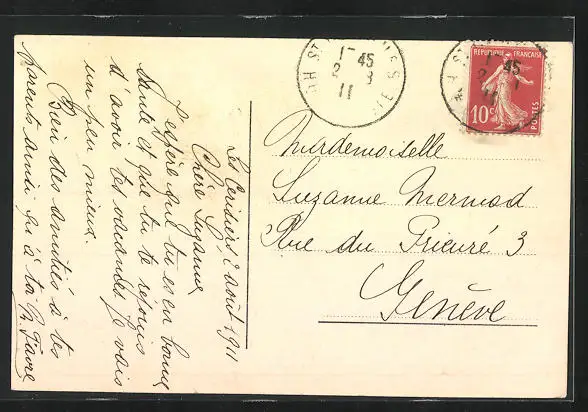 Les Cerisiers 2 août 1911
Chère Suzanne
J'espère que tu es en bonne
santé et que tu te rejouis
d'avoir tes vacances. Je vais
un peu mieux.
Bien des amitiés à tes
parents ainsi qu'à toi. Favre
1- 45
2 8
11
RÉPUBLIQUE FRANÇAISE
POSTES
10c
45
11
Mademoiselle
Suzanne Mermod
Rue du Prieuré 3
Genève